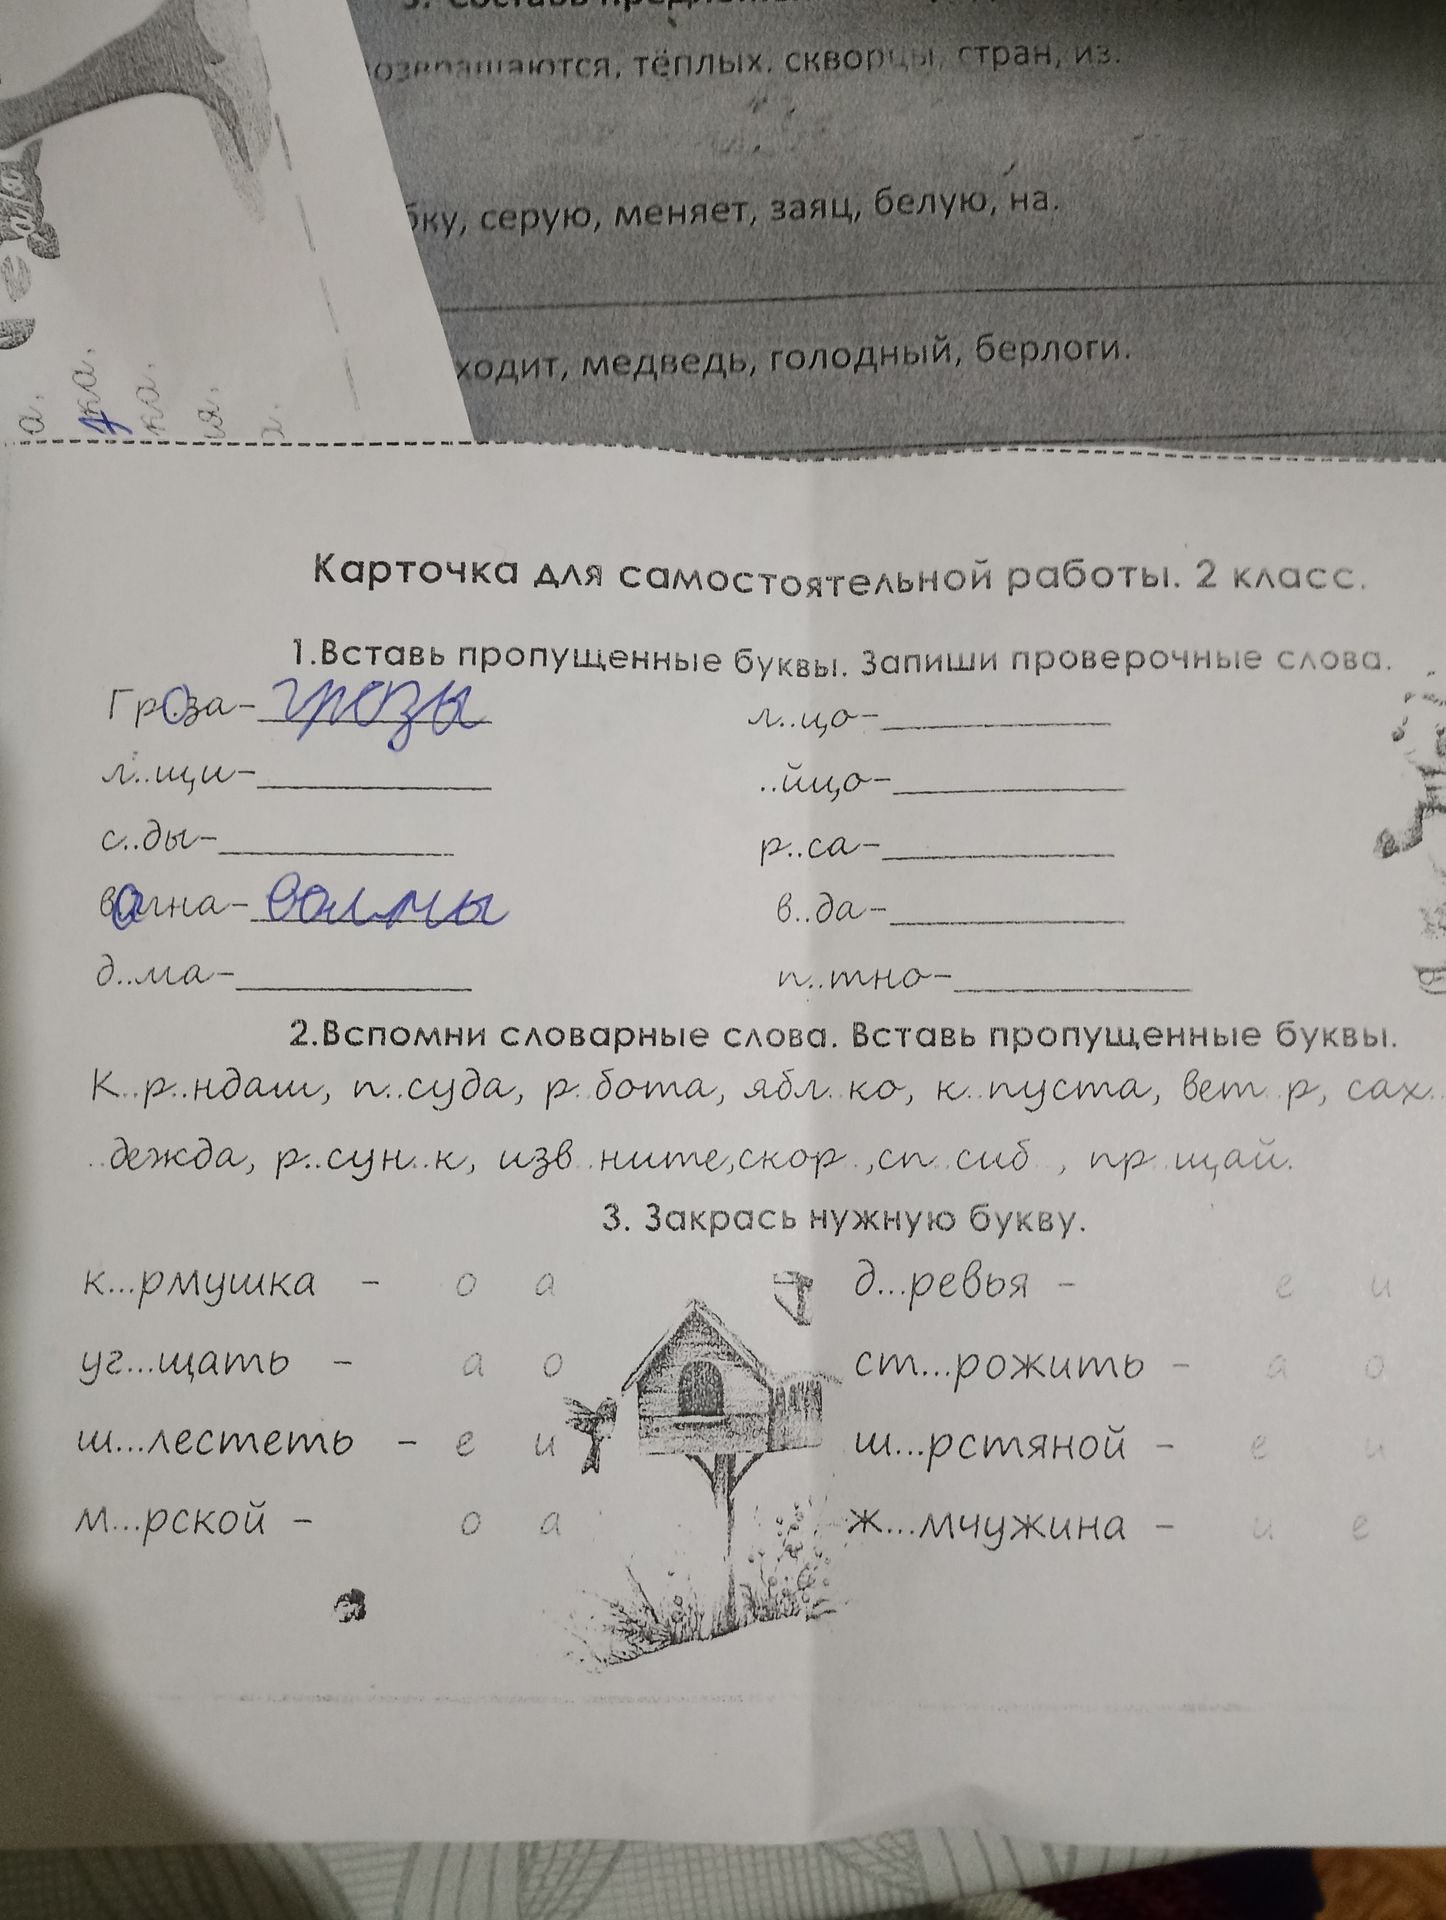 5. Составь
тёплых, скворцы, стран, из.
серую, меняет, заяц, белую, на.
ходит, медведь, голодный, берлоги.
а.
ка.
ка.
ия.
Карточка для самостоятельной работы. 2 класс.
1.Вставь пропущенные буквы. Запиши проверочные слова.
Гроза- грозы л..цо-
л..щи- ..йцо-
с..ды- р..са-
в..да-
д..ма- п..тно-
2.Вспомни словарные слова. Вставь пропущенные буквы.
К..р..ндаш, п..суда, р..бота, ябл..ко, к..пуста, вет..р, сах..
..дежда, р..сун..к, изв..ните,скор..,сп..сиб.., пр..щай.
3. Закрась нужную букву.
к...рмушка - о а д...ревья - е и
уг...щать - а о ст...рожить - а о
ш...лестеть - е и ш...рстяной - е и
м...рской - о а ж...мчужина - и е